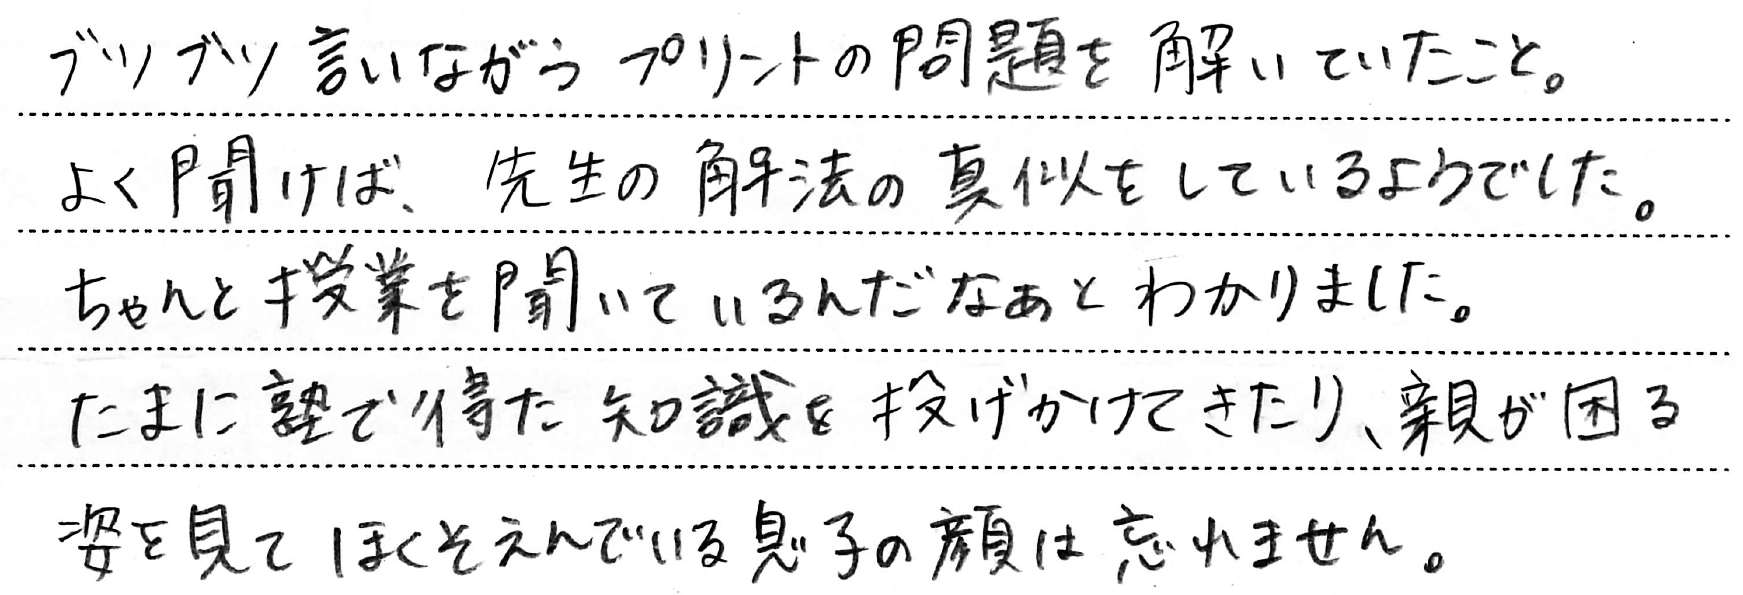 ブツブツ言いながらプリントの問題を解いていたこと。
よく聞けば、先生の解法の真似をしているようでした。
ちゃんと授業を聞いているんだなぁとわかりました。
たまに塾で得た知識を投げかけてきたり、親が困る
姿を見てほくそえんでいる息子の顔は忘れません。